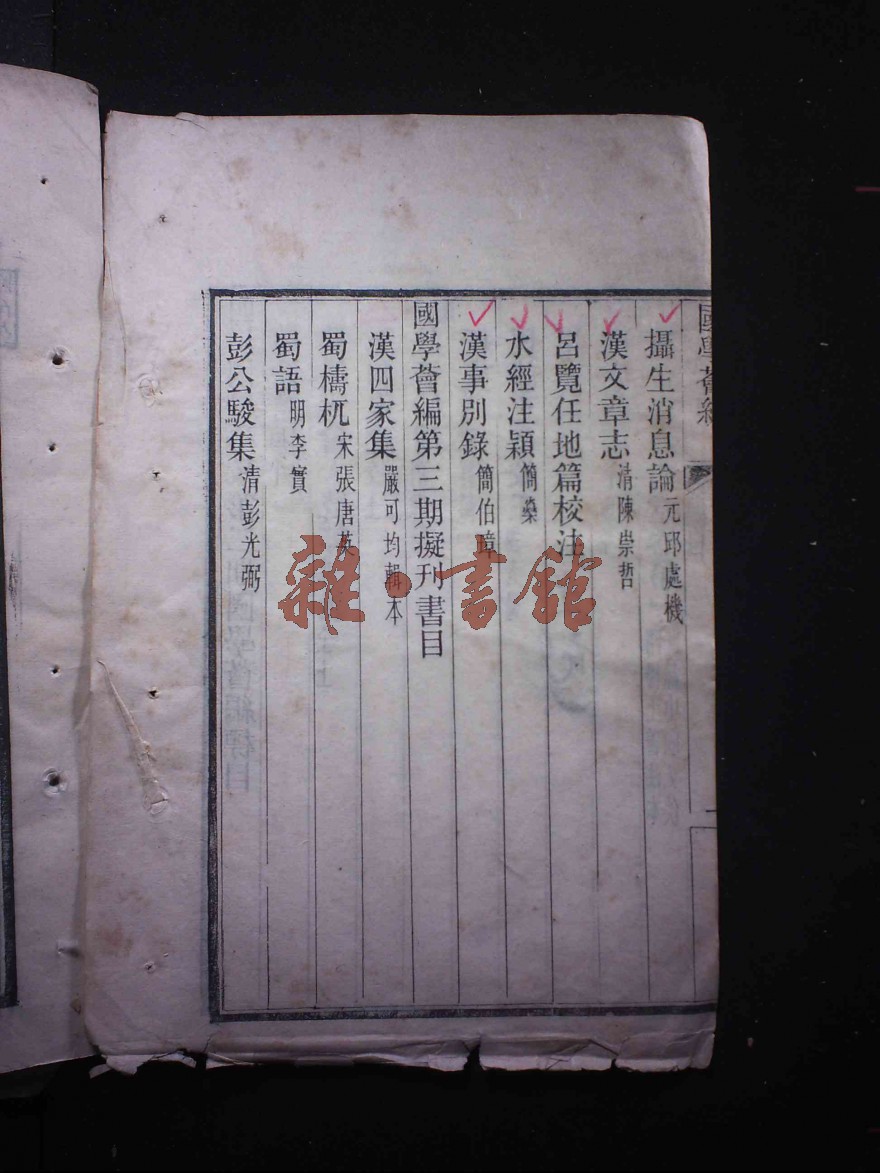 國學薈編
攝生消息論元邱處機
漢文章志清陳崇哲
呂覽任地篇校注
水經注穎簡燊
漢事別錄簡伯璋
國學薈編第三期擬刊書目
漢四家集嚴可均輯本
蜀檮杌宋張唐英
蜀語明李實
彭公駿集清彭光弼
雜·書館